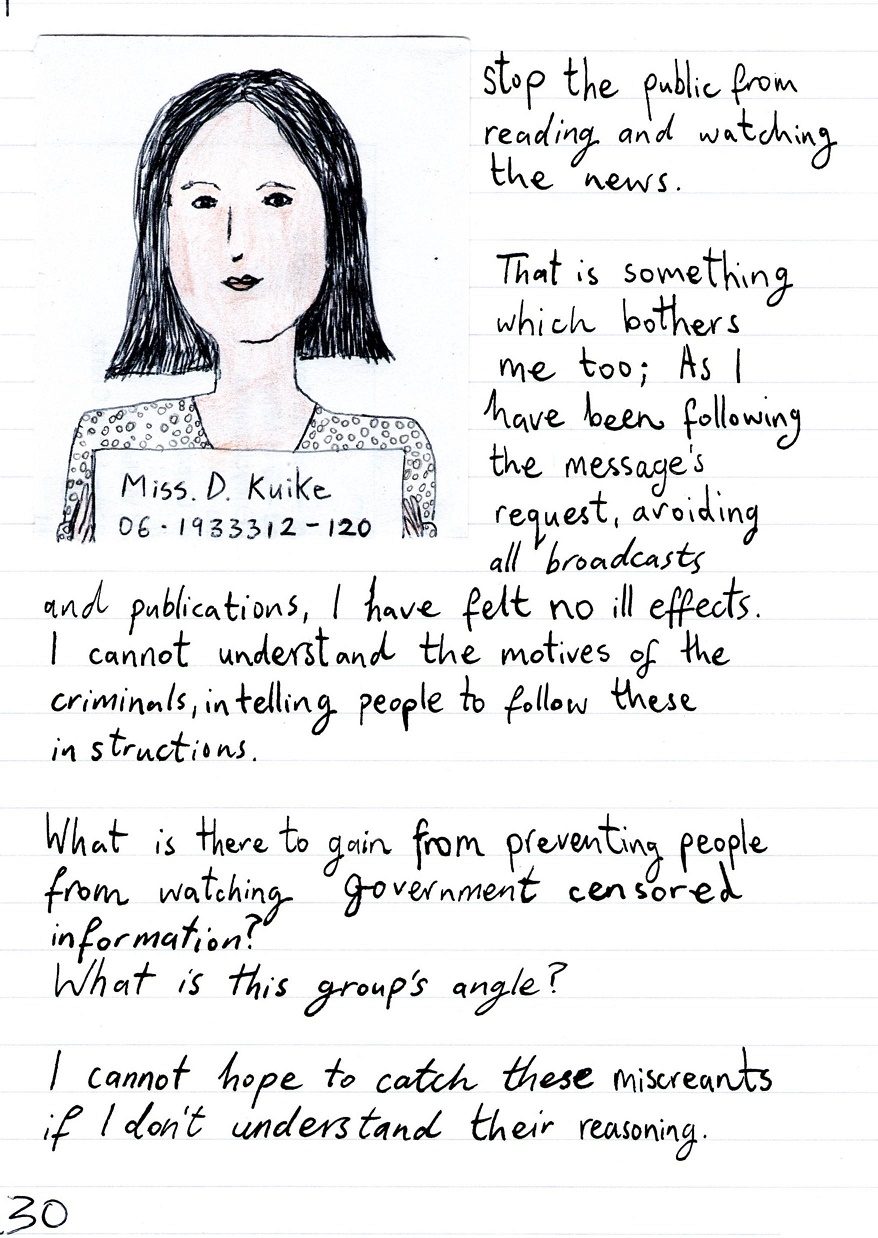 stop the public from
reading and watching
the news.
That is something
which bothers
me too; As I
have been following
the message's
request, avoiding
all broadcasts
Miss. D. Kuike
06·1933312-120
and publications, I have felt no ill effects.
I cannot understand the motives of the
criminals, in telling people to follow these
instructions.
What is there to gain from preventing people
from watching government censored
information?
What is this group's angle?
I cannot hope to catch these miscreants
if I don't understand their reasoning.
30